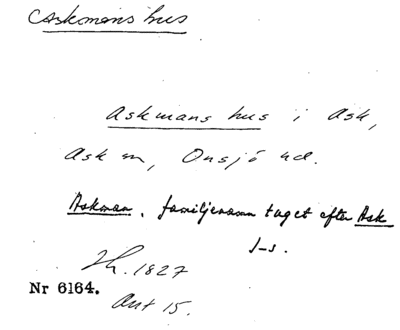 Askmans hus
Askmans hus i Ask,
Ask sn, Onsjö hd.
Askman, familjenamn taget efter Ask
J-s.
Jh. 1827
Nr 6164.
Ant 15.